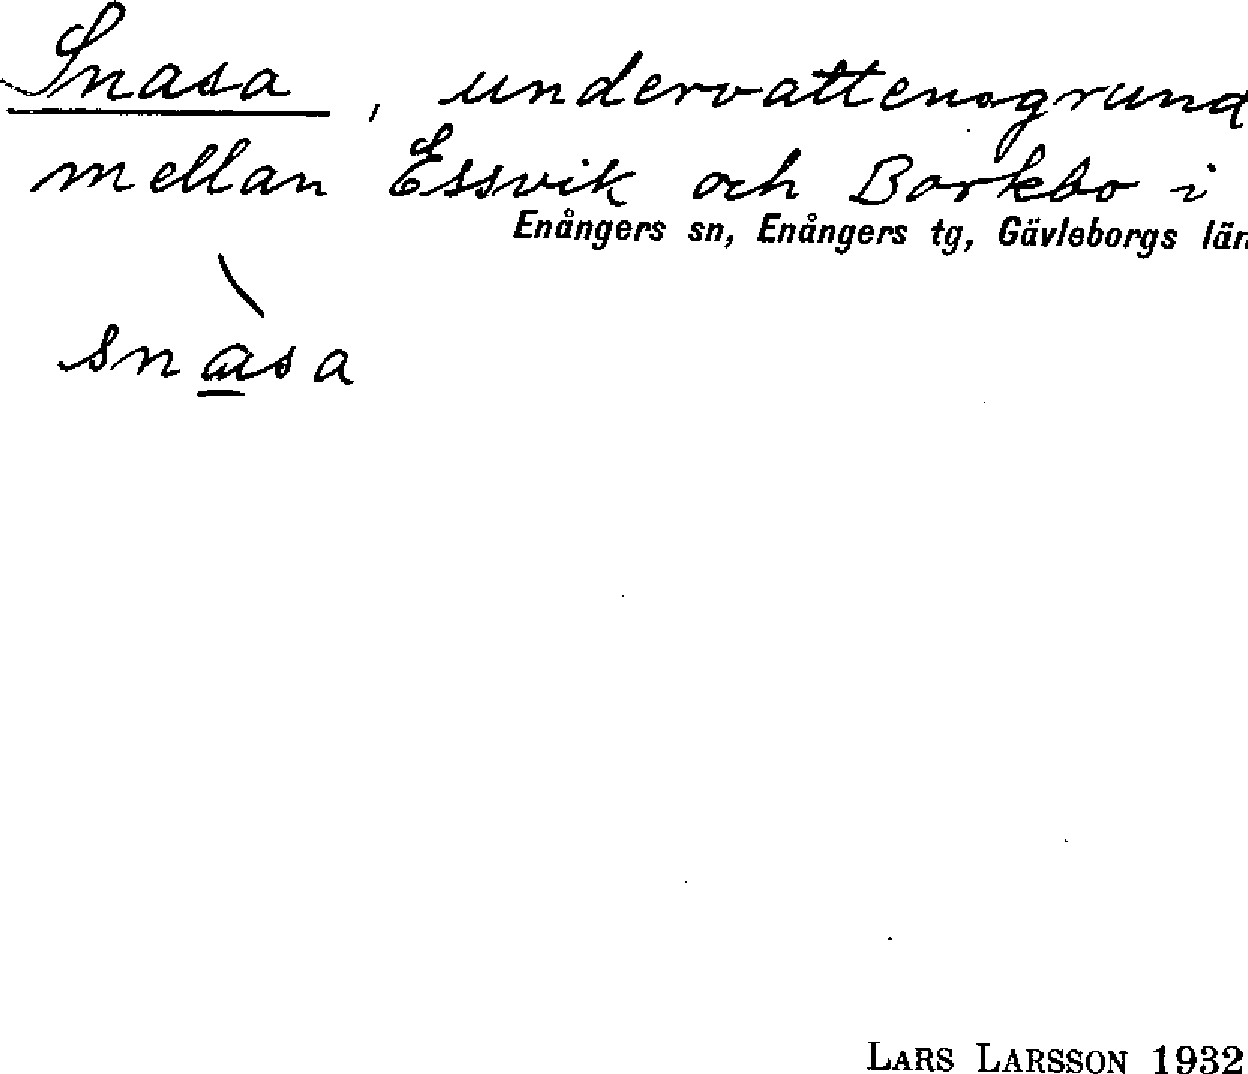 Snasa, undervattensgrund
mellan Essvik och Borkbo i
Enångers sn, Enångers tg, Gävleborgs län
snàsa
LARS LARSSON 1932